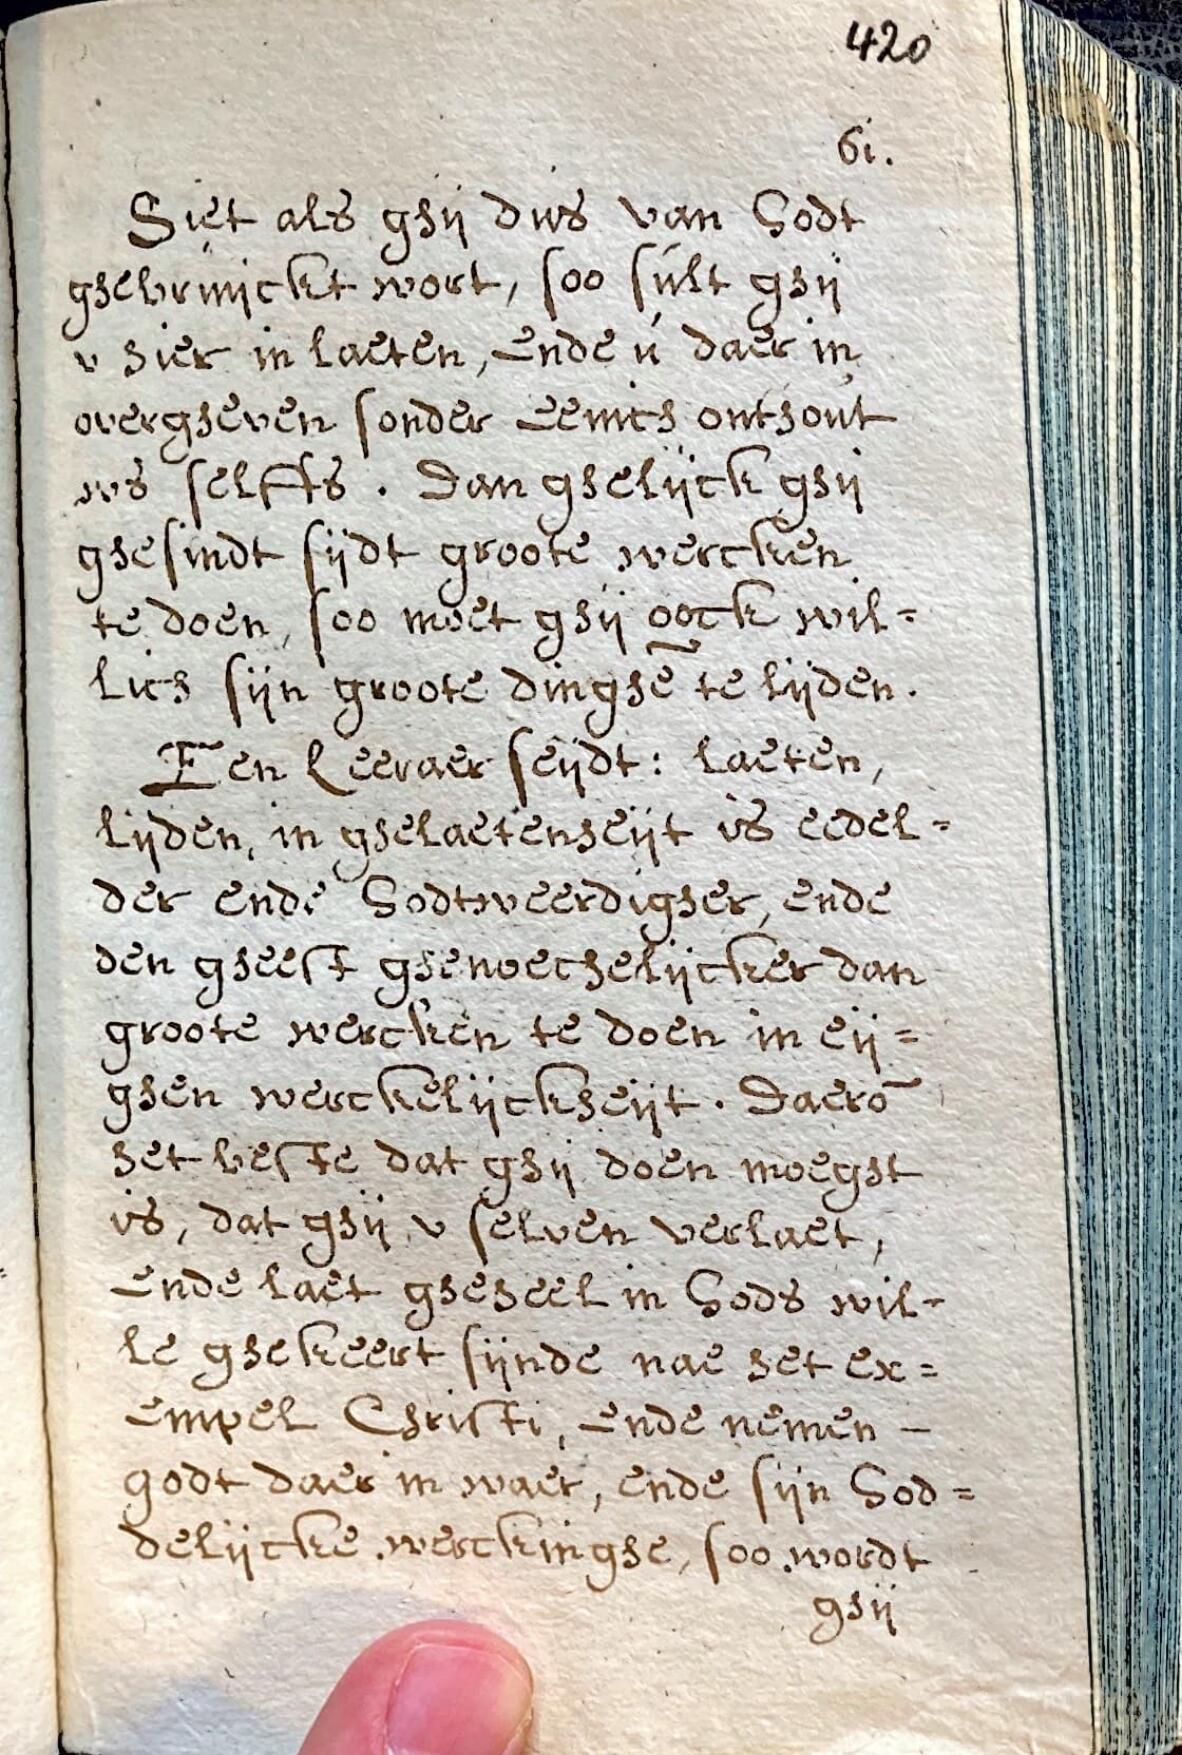 420
61.
Siet als ghij dus van Godt
ghebruijckt wort, soo sult ghij
v hier in laeten, ende ú daer in
overgheven sonder eenich onthout
vvs selffs. Dan ghelijck ghij
ghesindt sijdt groote wercken
te doen, soo moet ghij oock wil=
lich sijn groote dinghē te lijden.
Een Leeraer seijdt: laeten,
lijden, in ghelaetenheijt is eedel=
der ende Godtweerdigher, ende
den gheest ghenoechelijcker dan
groote wercken te doen in eij=
ghen werckelijckheijt. Daerō
het beste dat ghij doen moeght
is, dat ghij v selven verlaet,
ende laet gheheel in Gods wil-
le ghekeert sijnde nae het ex=
empel Christi, ende nemen –
godt daer in waer, ende sijn God=
delijcke werckinghe, soo wordt
ghij